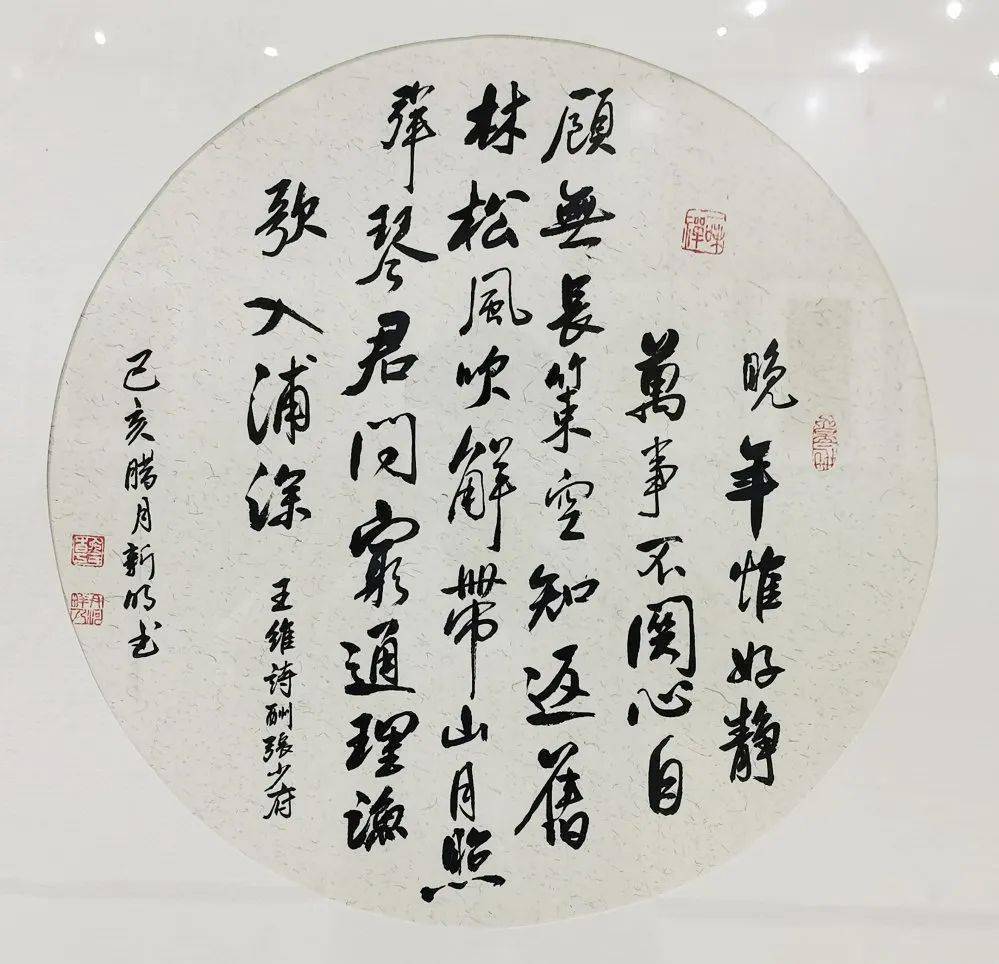 晚年惟好静
萬事不關心自
顧無長策空知返舊
林松風吹解帶山月照
彈琴君問窮通理漁
歌入浦深
王維詩酬張少府
己亥臘月新明書